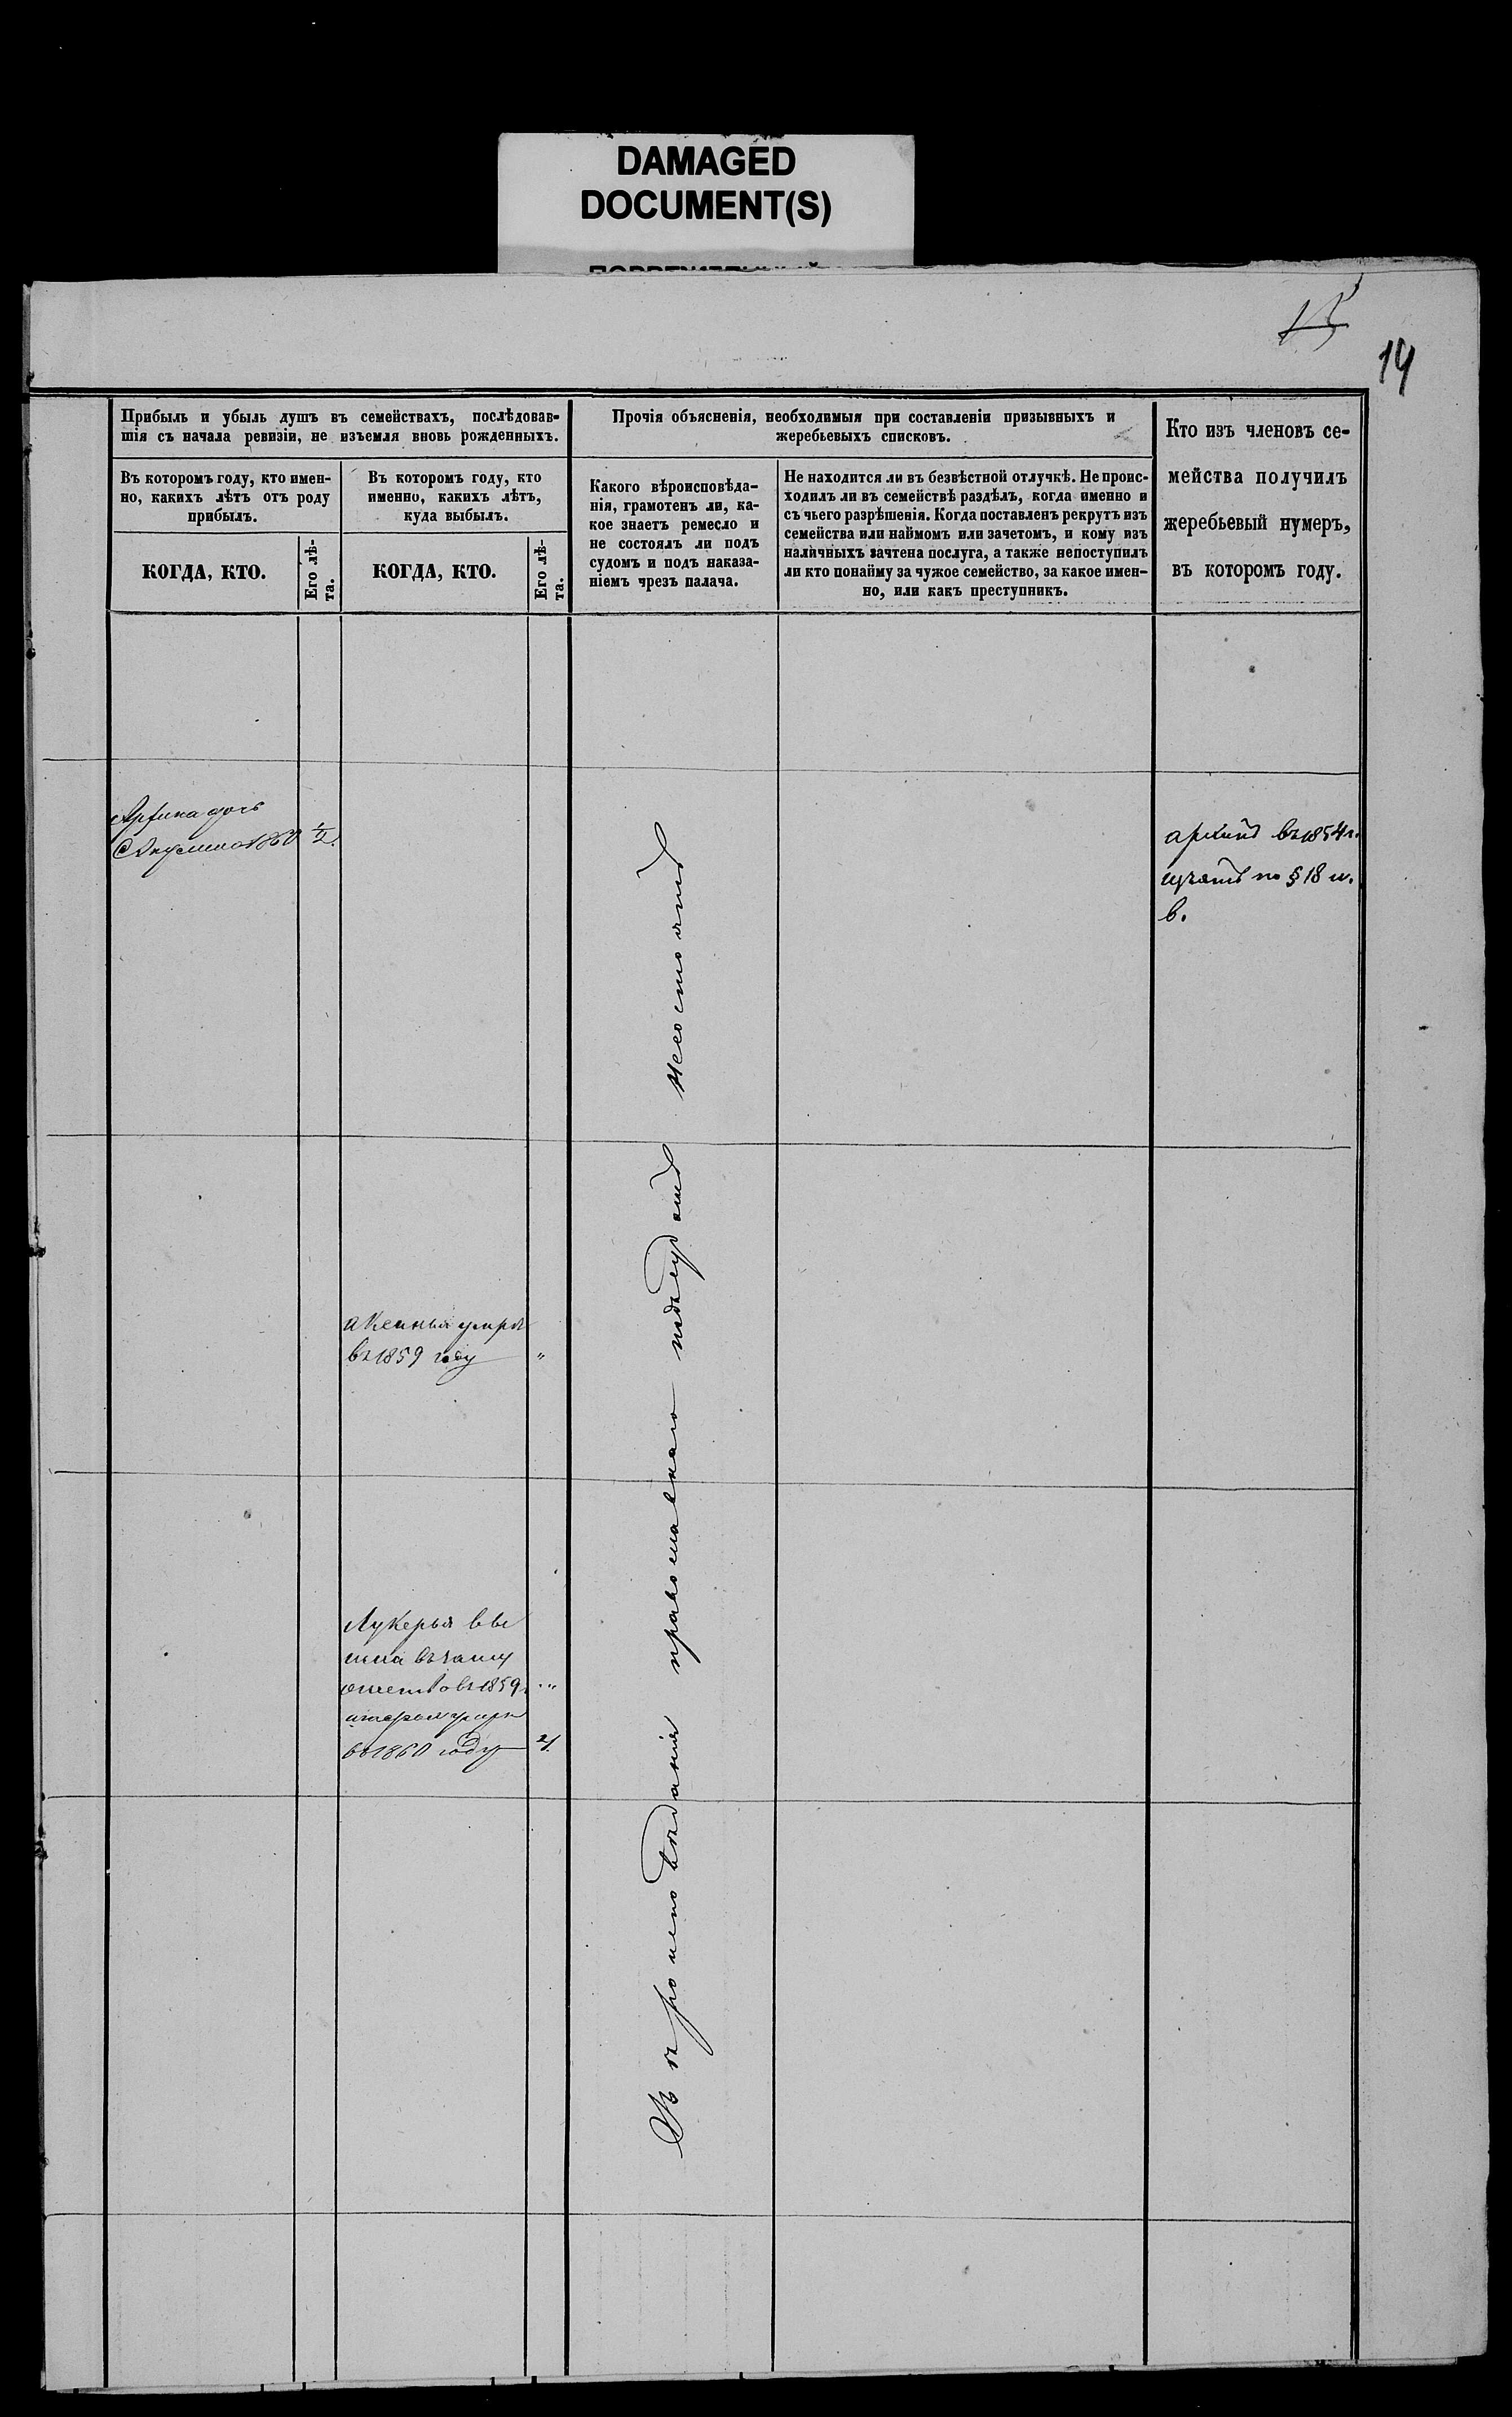 DAMAGED
DOCUMENT(S)
15
19
Прибыль и убыль душъ въ семействахъ, послѣдовав-
шія съ начала ревизіи, не изъемля вновь рожденныхъ.
Въ которомъ году, кто имен-
но, какихъ лѣтъ отъ роду
прибылъ.
КОГДА, КТО.
Его лѣ-
та.
Въ которомъ году, кто
именно, какихъ лѣтъ,
куда выбылъ.
КОГДА, КТО.
Его лѣ-
та.
Прочія объясненія, необходимыя при составленіи призывныхъ и
жеребьевыхъ списковъ.
Какого вѣроисповѣда-
нія, грамотенъ ли, ка-
кое знаетъ ремесло и
не состоялъ ли подъ
судомъ и подъ наказа-
ніемъ чрезъ палача.
Не находится ли въ безвѣстной отлучкѣ. Не проис-
ходилъ ли въ семействѣ раздѣлъ, когда именно и
съ чьего разрѣшенія. Когда поставленъ рекрутъ изъ
семейства или наймомъ или зачетомъ, и кому изъ
наличныхъ зачтена послуга, а также непоступилъ
ли кто понайму за чужое семейство, за какое имен-
но, или какъ преступникъ.
Кто изъ членовъ се-
мейства получилъ
жеребьевый нумеръ,
въ которомъ году.
дочь
1860 1/2.
въ 1854 г.
по § 18 и.
в.
Аксинья умре
въ 1859 году "
Лукерья вы
въ 1859 "
умре
въ 1860 году 21.
Вѣроисповѣданія православнаго подсудомъ несостоитъ